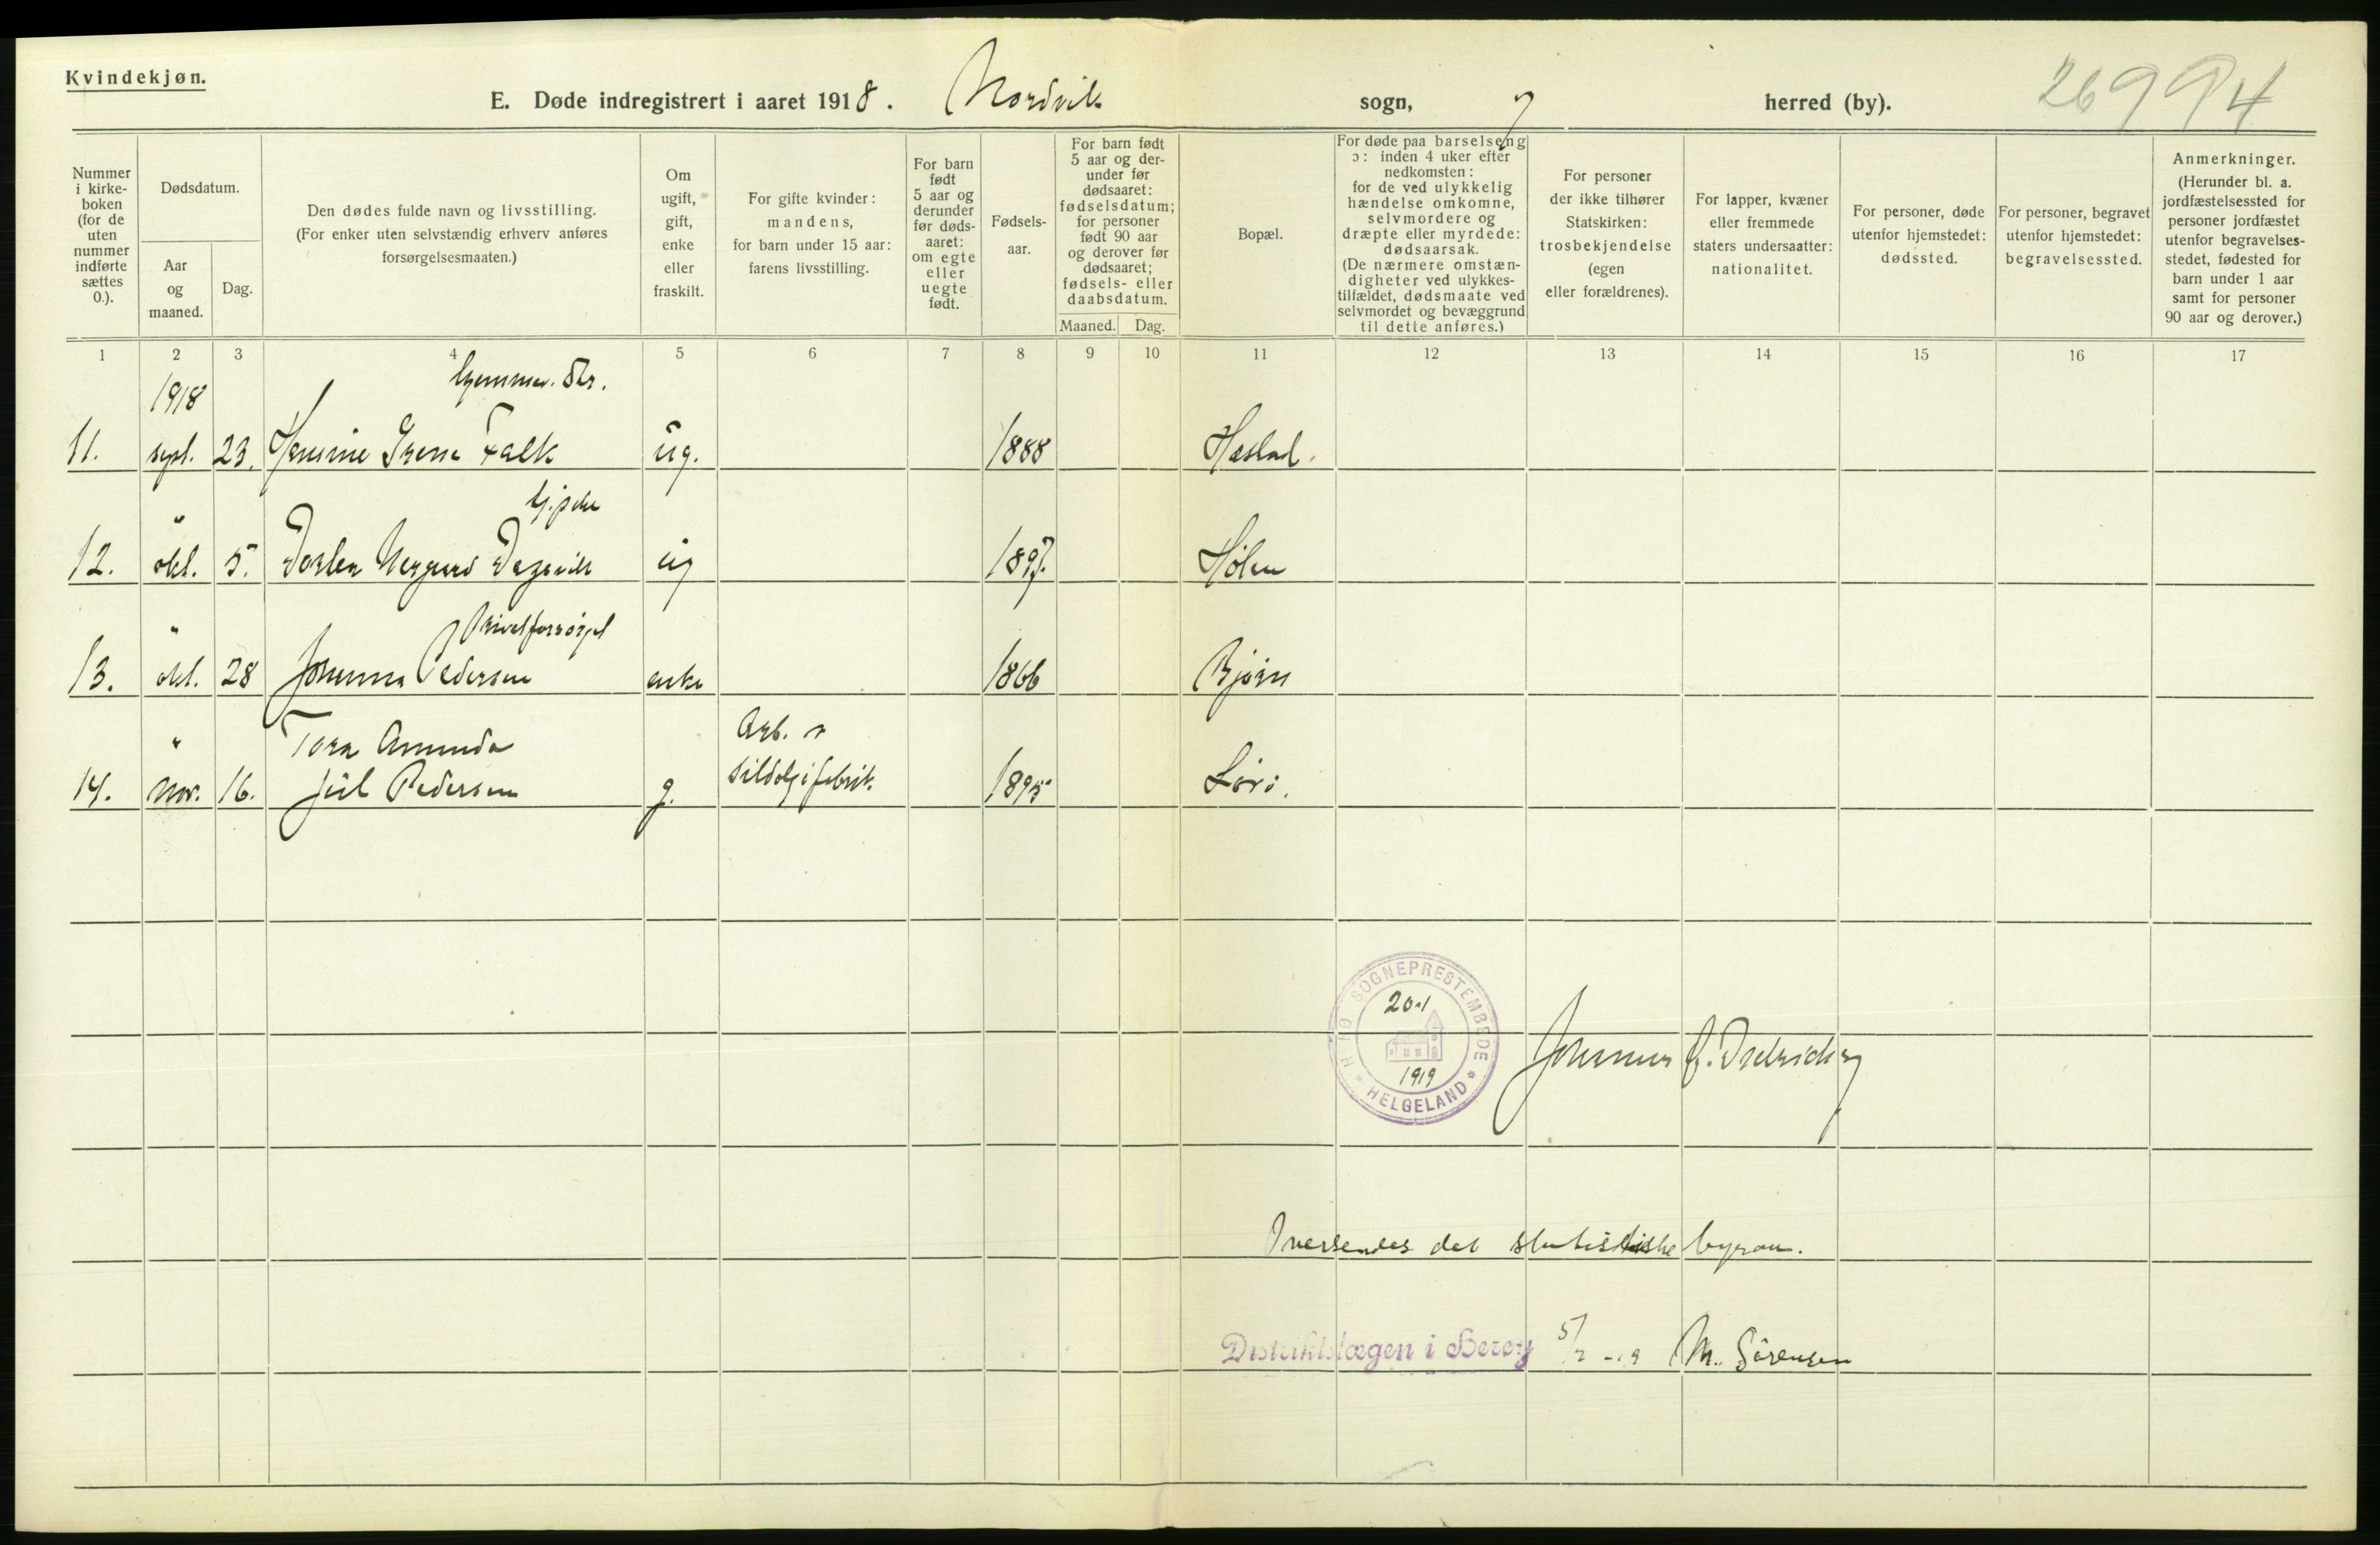 Kvindekjøn.
E. Døde indregistrert i aaret 1918. Nordvik sogn, herred (by).
26994
Nummer i kirke-boken (for de uten nummer indførte sættes 0.).
Dødsdatum.
Aar og maaned.
Dag.
Den dødes fulde navn og livsstilling.
(For enker uten selvstændig erhverv anføres
forsørgelsesmaaten.)
Om ugift, gift, enke eller fraskilt.
For gifte kvinder:
mandens,
for barn under 15 aar:
farens livsstilling.
For barn født 5 aar og derunder før døds-aaret: om egte eller uegte født.
Fødsels-aar.
For barn født
5 aar og der-
under før
dødsaaret:
fødselsdatum;
for personer
født 90 aar
og derover før
dødsaaret;
fødsels- eller
daabsdatum.
Maaned. Dag.
Bopæl.
For døde paa barselseng
ɔ: inden 4 uker efter
nedkomsten:
for de ved ulykkelig
hændelse omkomne,
selvmordere og
dræpte eller myrdede:
dødsaarsak.
(De nærmere omstæn-
digheter ved ulykkes-
tilfældet, dødsmaate ved
selvmordet og bevæggrund
til dette anføres.)
For personer
der ikke tilhører
Statskirken:
trosbekjendelse
(egen
eller forældrenes).
For lapper, kvæner
eller fremmede
staters undersaatter:
nationalitet.
For personer, døde
utenfor hjemstedet:
dødssted.
For personer, begravet
utenfor hjemstedet:
begravelsessted.
Anmerkninger.
(Herunder bl. a.
jordfæstelsessted for
personer jordfæstet
utenfor begravelses-
stedet, fødested for
barn under 1 aar
samt for personer
90 aar og derover.)
1 2 3 4 5 6 7 8 9 10 11 12 13 14 15 16 17
1918
11. sept. 23. Falk ug. 1888 Hæstad.
"
12. okt. 5. ug 1897. Hølen
" Privat forsørget
13. okt. 28 Johanna Pedersen enke 1866 Bjørn
" Tora Amunda Arb. v
14. Nov. 16. Juul Pedersen g. sildoljefabrik. 1895
SOGNEPRESTEMBEDE
20-1
1919
HELGELAND
Oversendes det statistiske byraa.
Distriktslægen i Herøy 5/2 -19 M. Sørensen